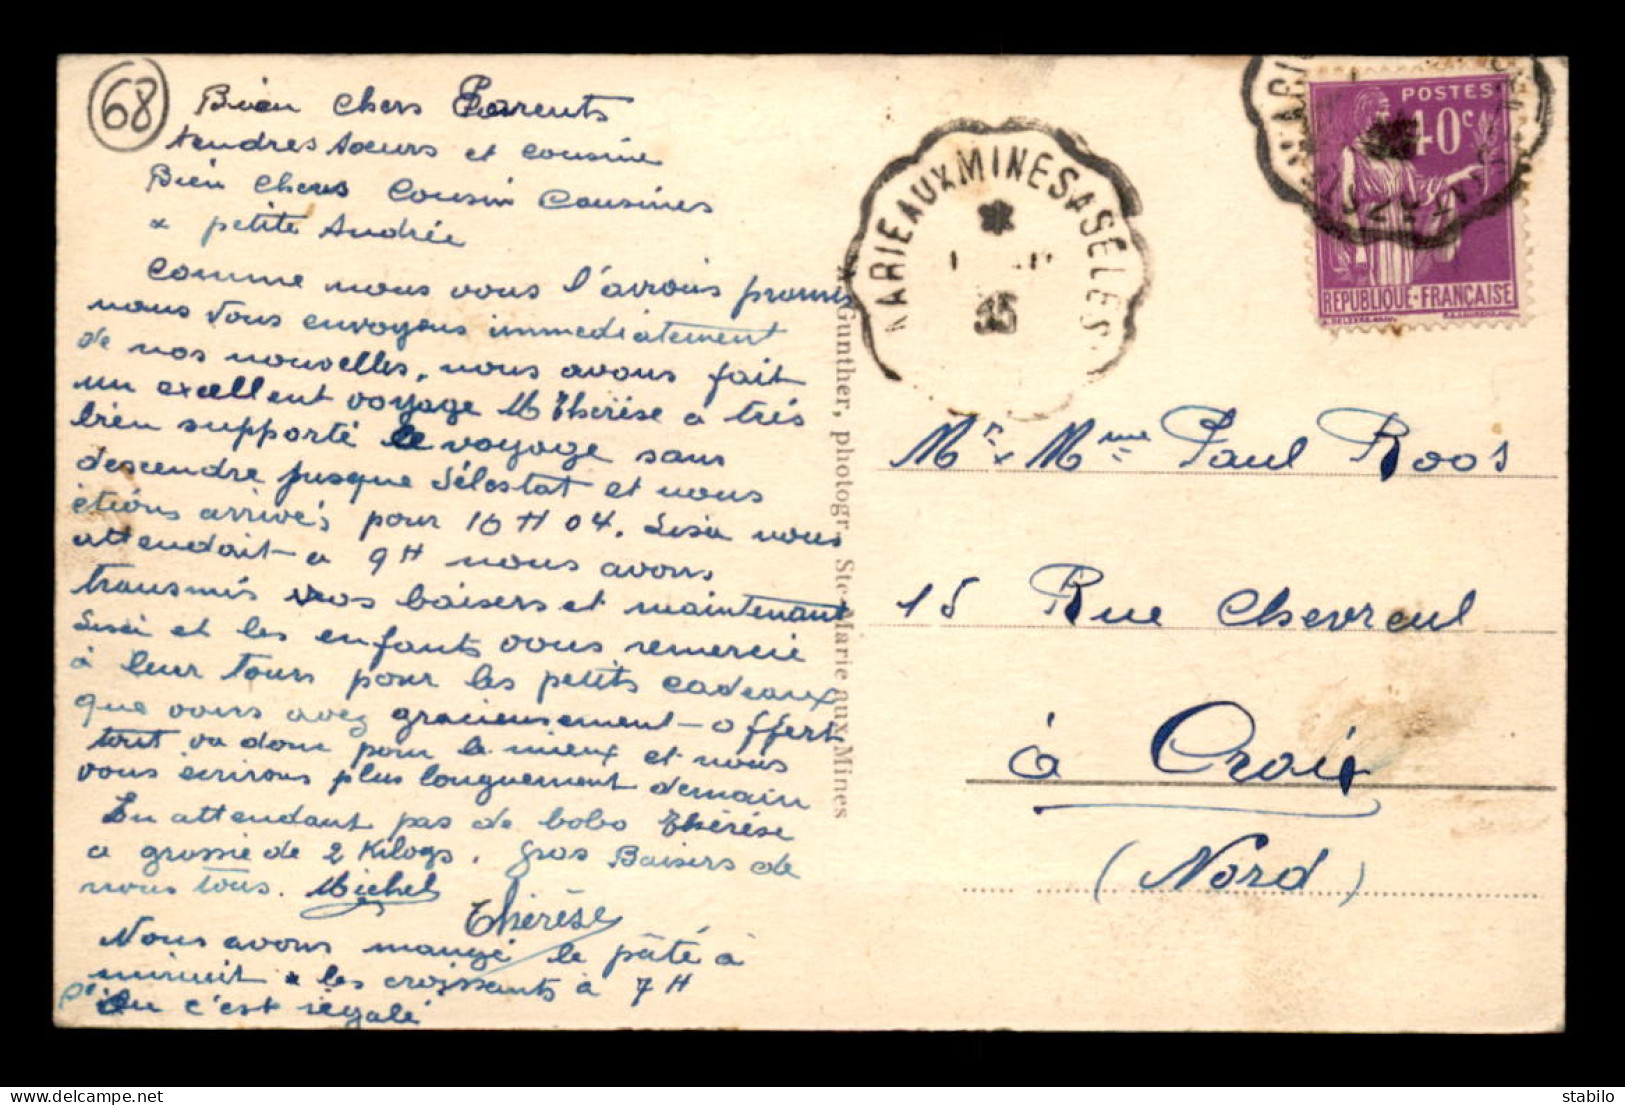 68
Bien chers Parents
tendres sœurs et cousine
Bien chers Cousin Cousines
& petite Andrée
Comme nous vous l'avions promis
nous vous envoyons immediatement
de nos nouvelles, nous avons fait
un excellent voyage M Thérèse a trés
bien supporté le voyage sans
descendre jusque Sélestat et nous
étions arrivés pour 10 H 04. Lisa nous
attendait a 9 H nous avons
transmis vos baisers et maintenant
Lisa et les enfants vous remercie
à leur tours pour les petits cadeaux
que vous avez gracieusement offert
tout va donc pour le mieux et nous
vous écrirons plus longuement demain
En attendant pas de bobo Thérèse
a grossie de 2 Kilogs. Gros Baisers de
nous tous. Michel
Thérèse
Nous avons mangé le pâté à
minuit & les croissants à 7 H
c'est régalé
Gunther, photogr. Ste-Marie aux-Mines
MARIE AUX MINES A SELES
35
POSTES
40c
REPUBLIQUE-FRANÇAISE
Mr & Mme Paul Roos
15 Rue Chevreul
à Croix
(Nord)
delcampe.net
sibello